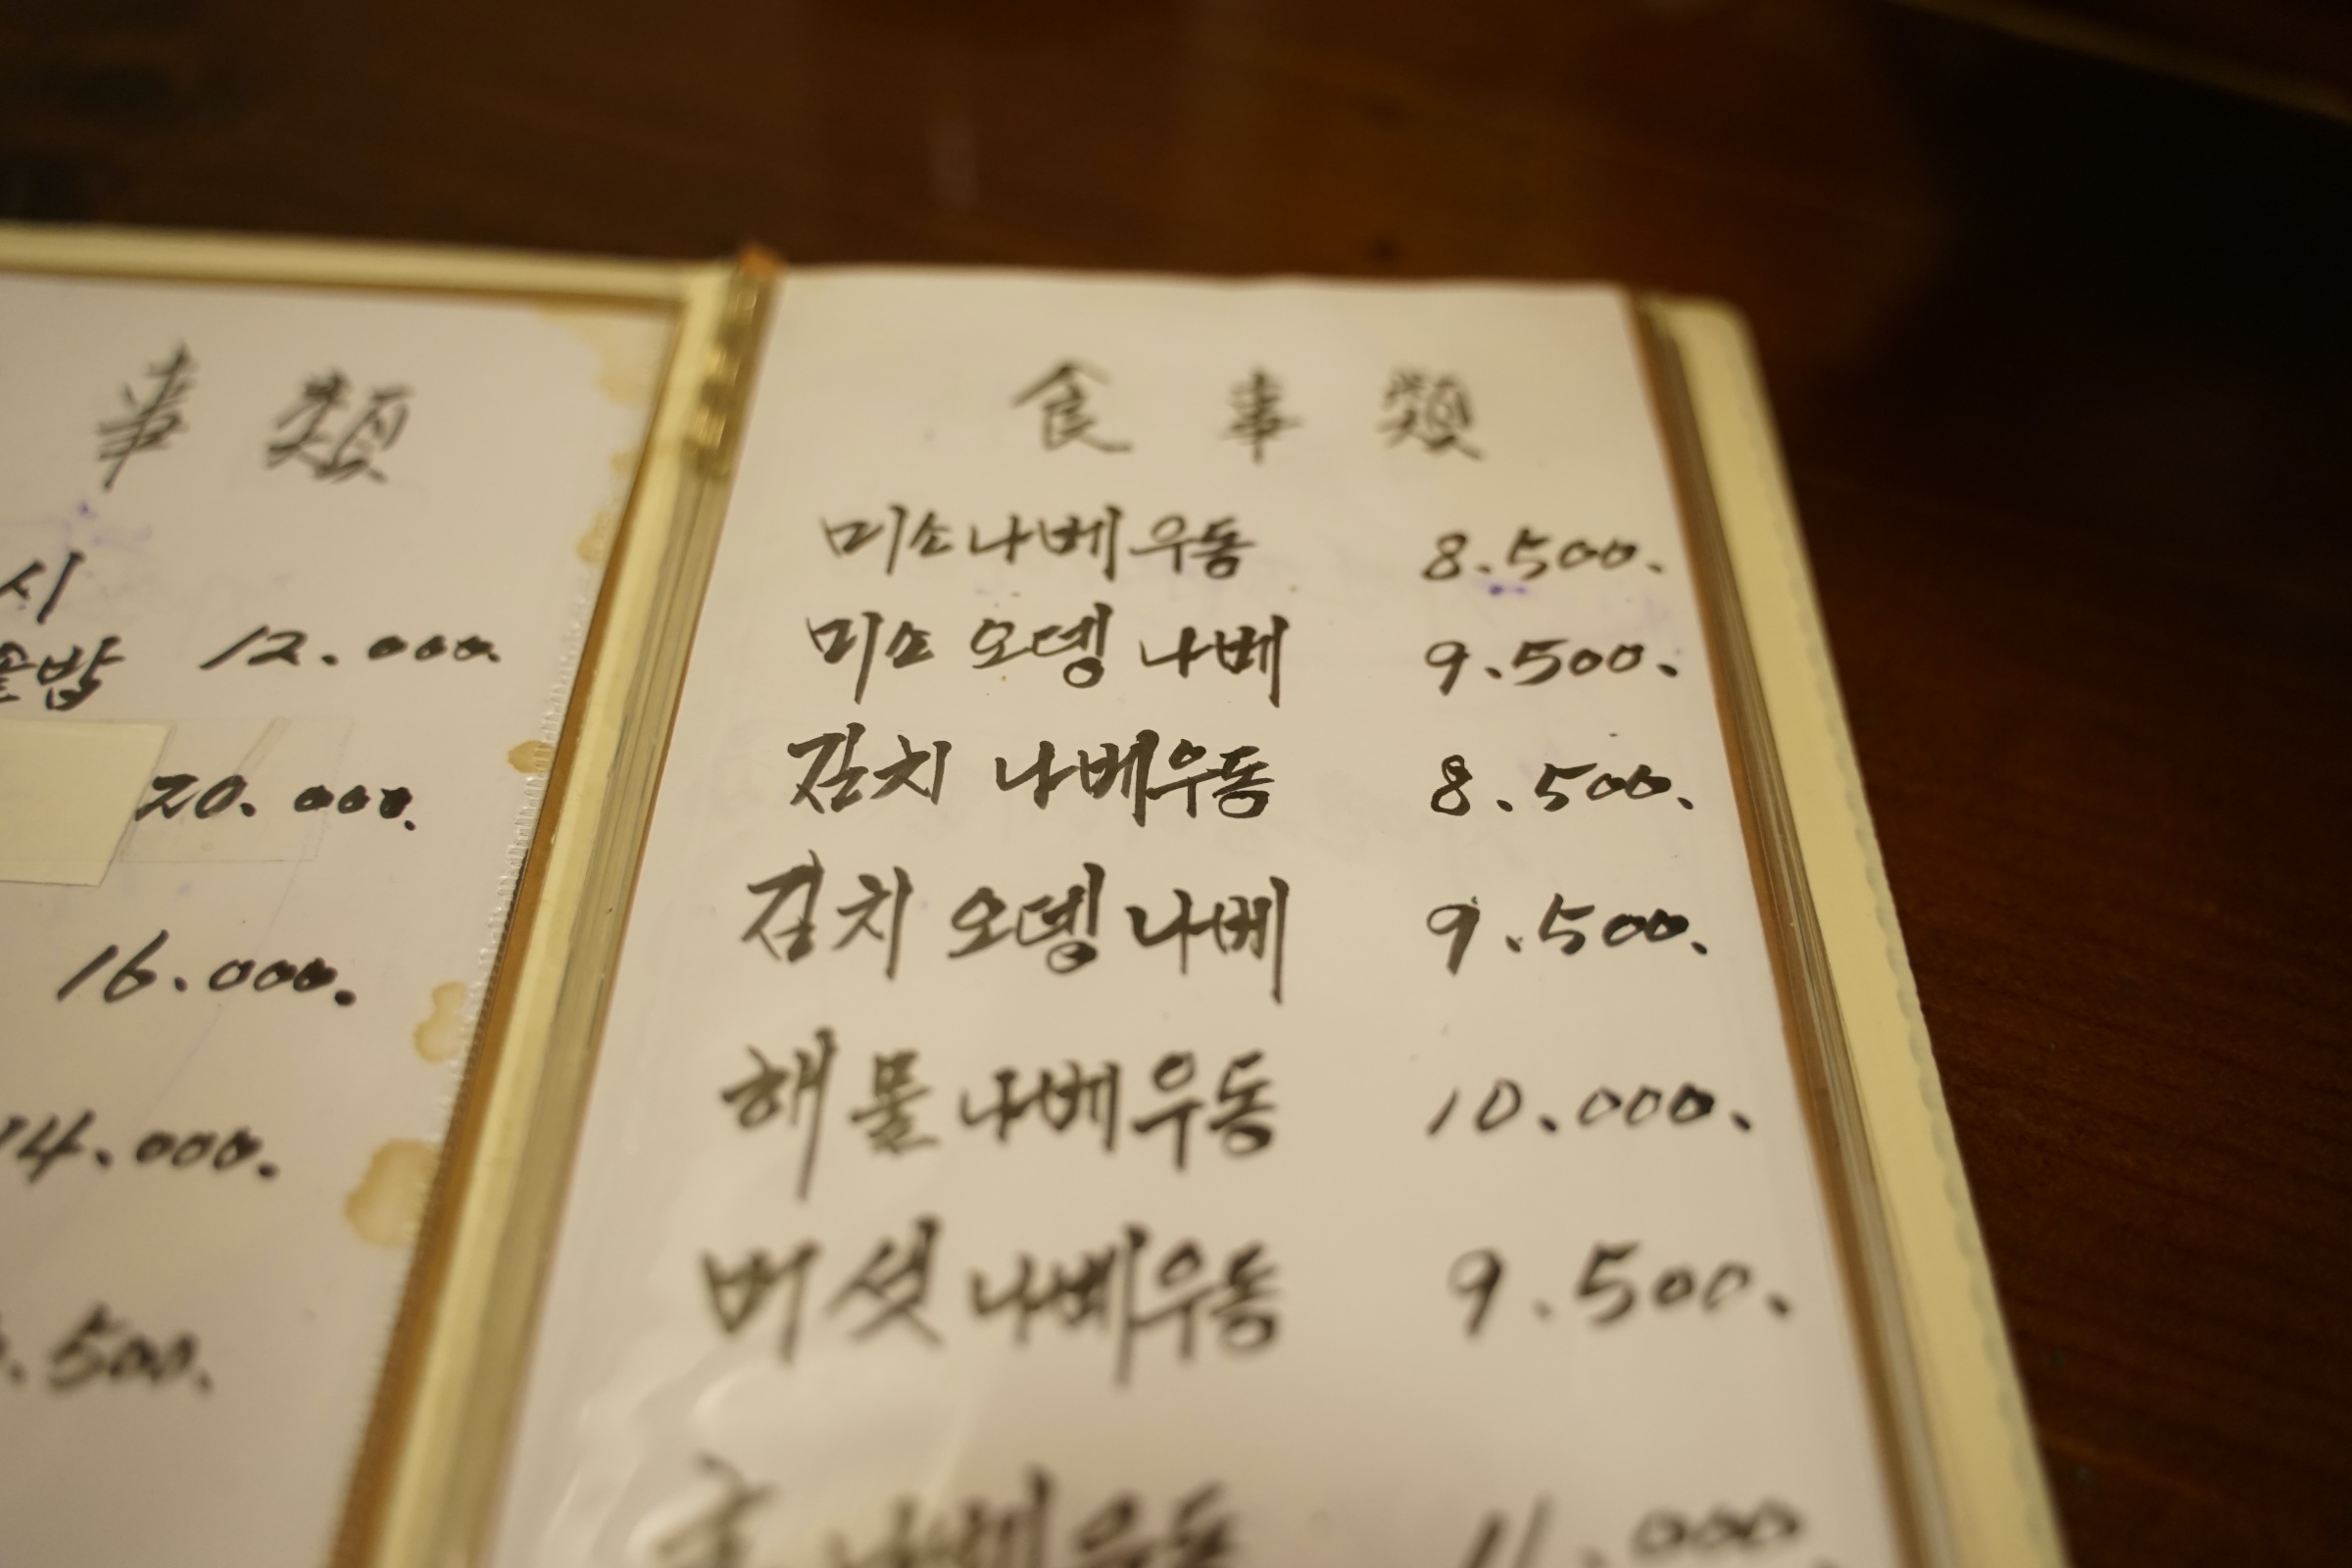 事 類
시
솥밥 12.000
20.000.
16.000.
14.000.
.500.
食 事 類
미소나베우동 8.500.
미소 오뎅 나베 9.500.
김치 나베우동 8.500.
김치 오뎅 나베 9.500.
해물나베우동 10.000.
버섯나베우동 9.500.
나베우동 11.000